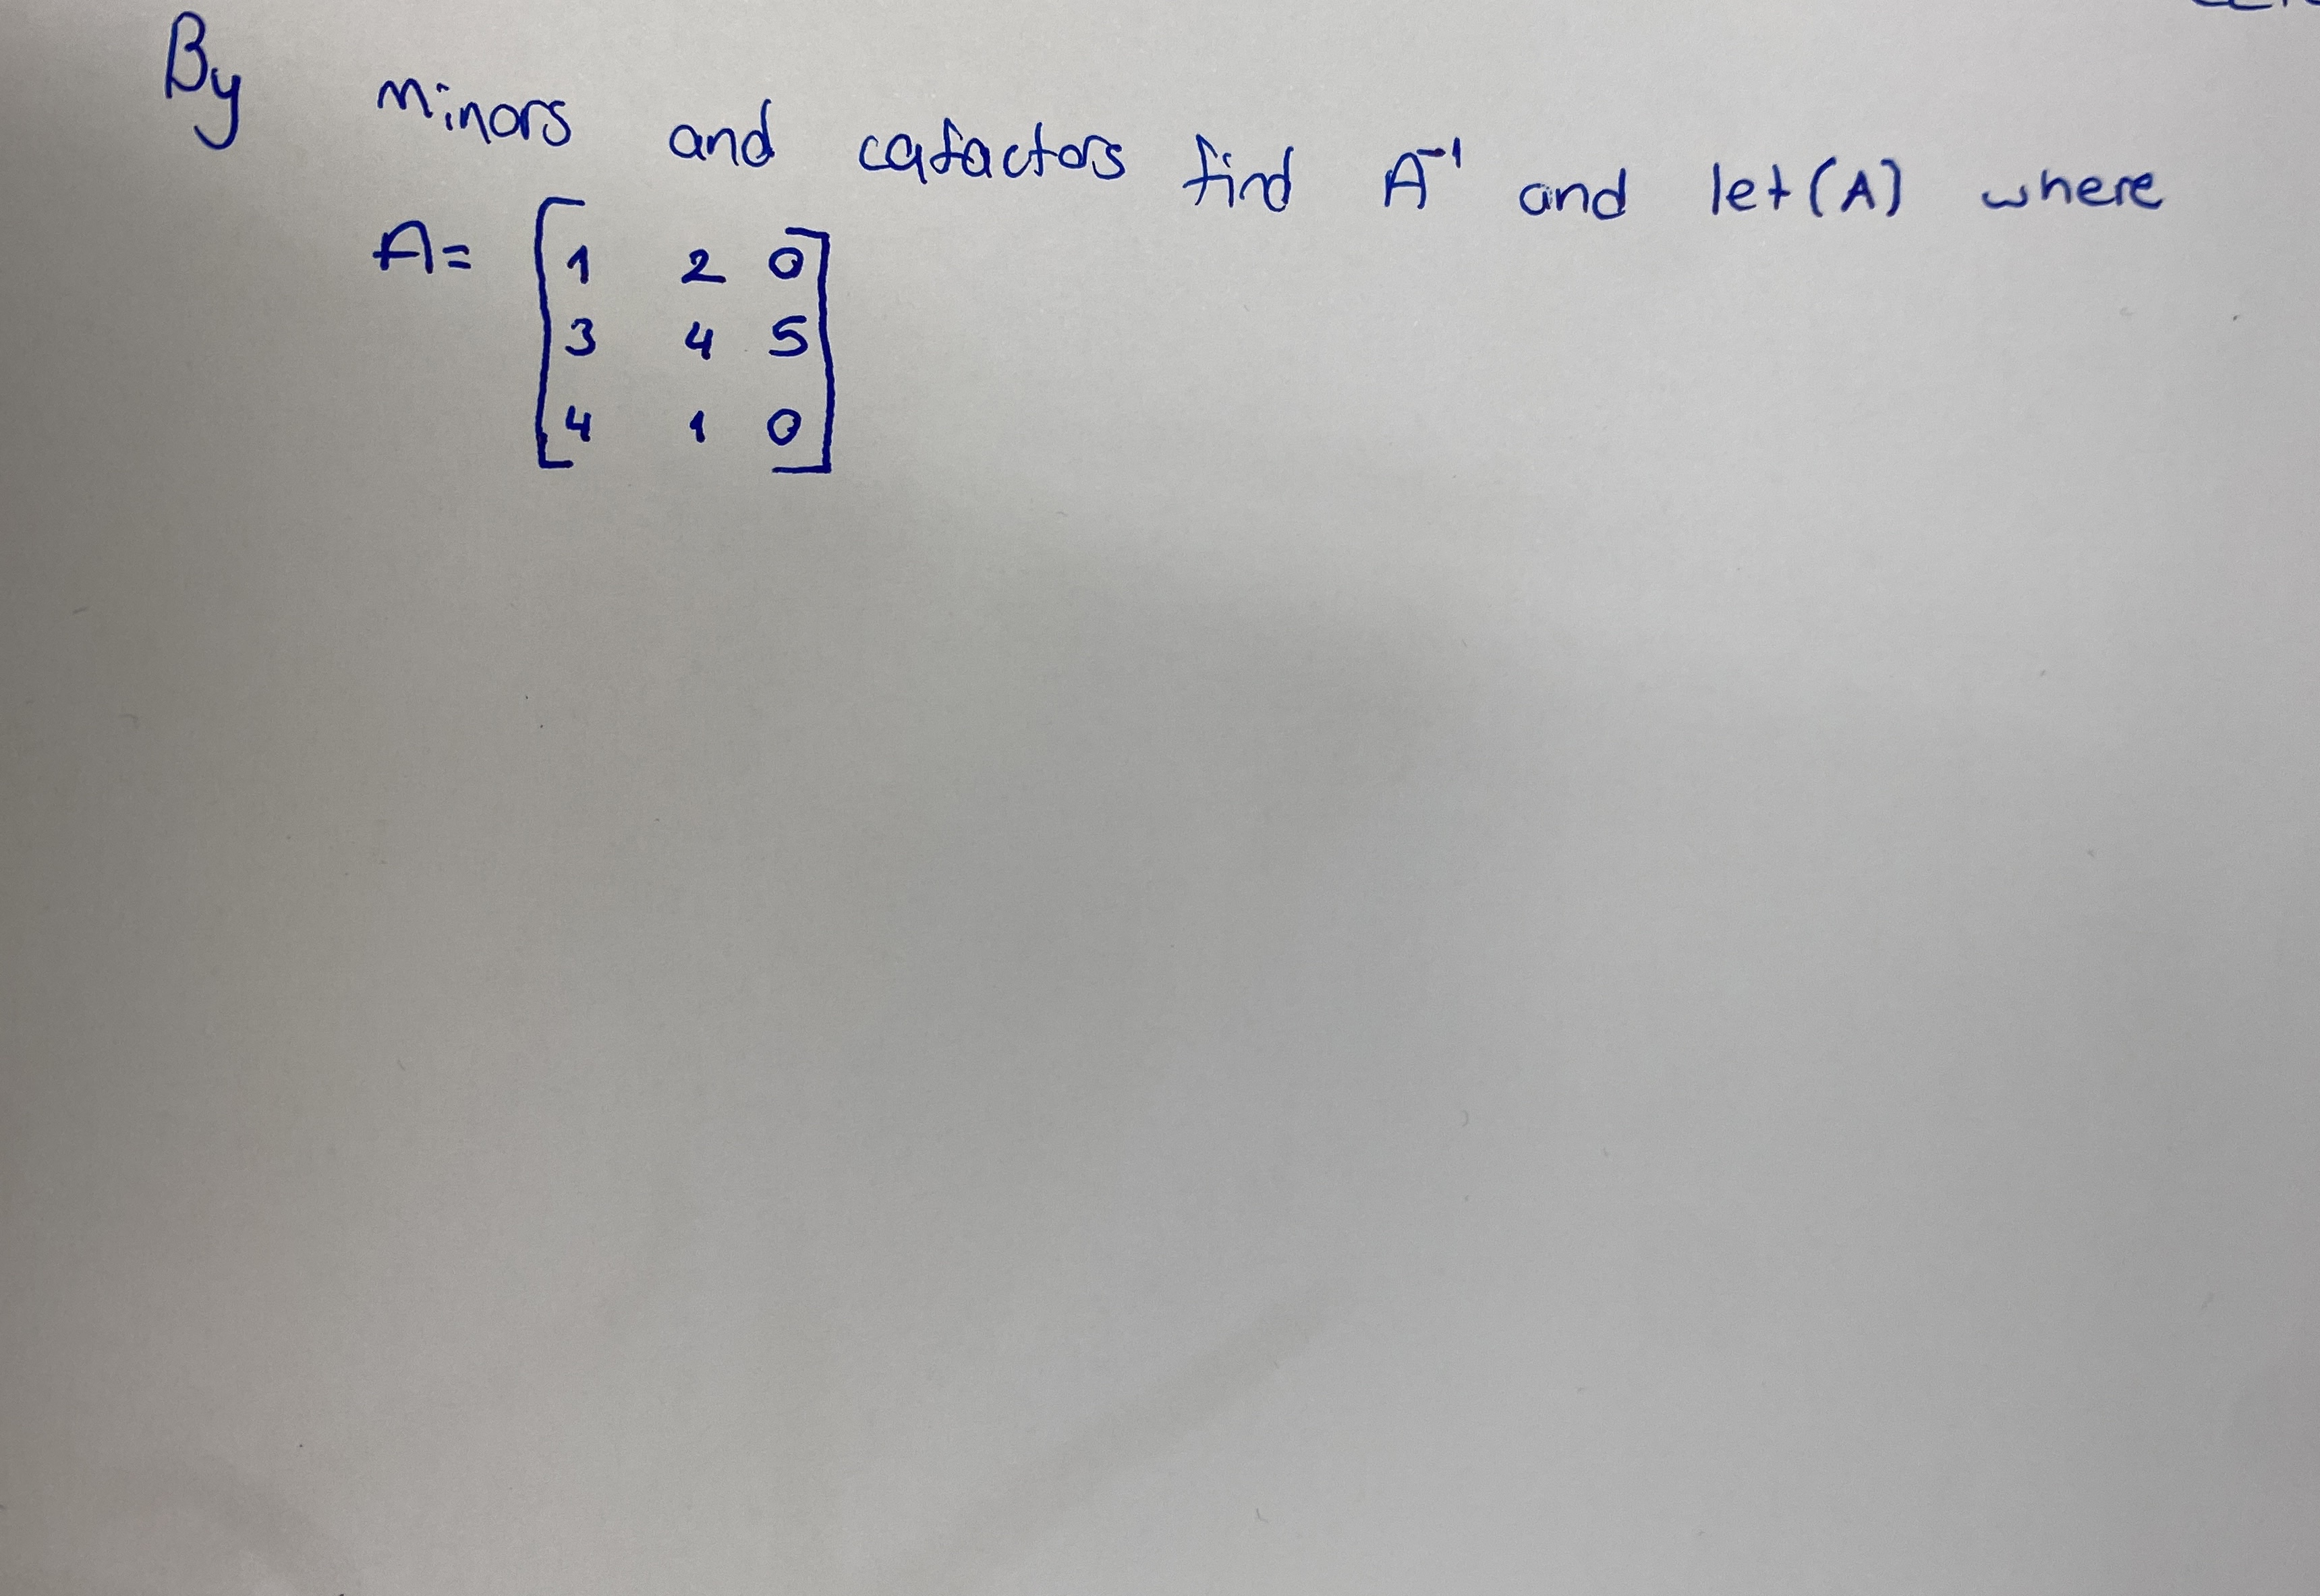 By minors and cafactors find A⁻¹ and let(A) where
A= [1 2 0
3 4 5
4 1 0]